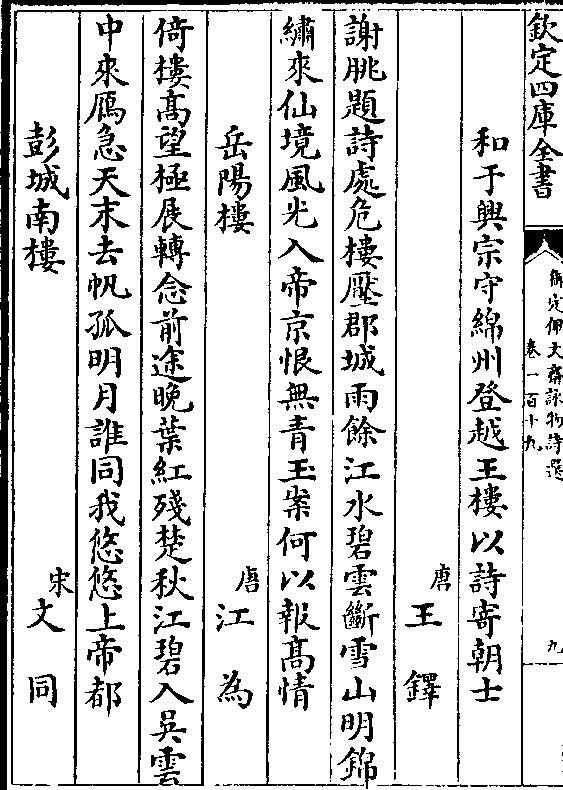 欽定四庫全書
御定佩文齋詠物詩選
卷一百十九
九
和于興宗守綿州登越王樓以詩寄朝士
唐王鐸
謝朓題詩處危樓壓郡城雨餘江水碧雲斷雪山明錦
繡來仙境風光入帝京恨無青玉案何以報髙情
岳陽樓
唐江為
倚樓髙望極展轉念前途晚葉紅殘楚秋江碧入吳雲
中來鴈急天末去帆孤明月誰同我悠悠上帝都
彭城南樓
宋文同